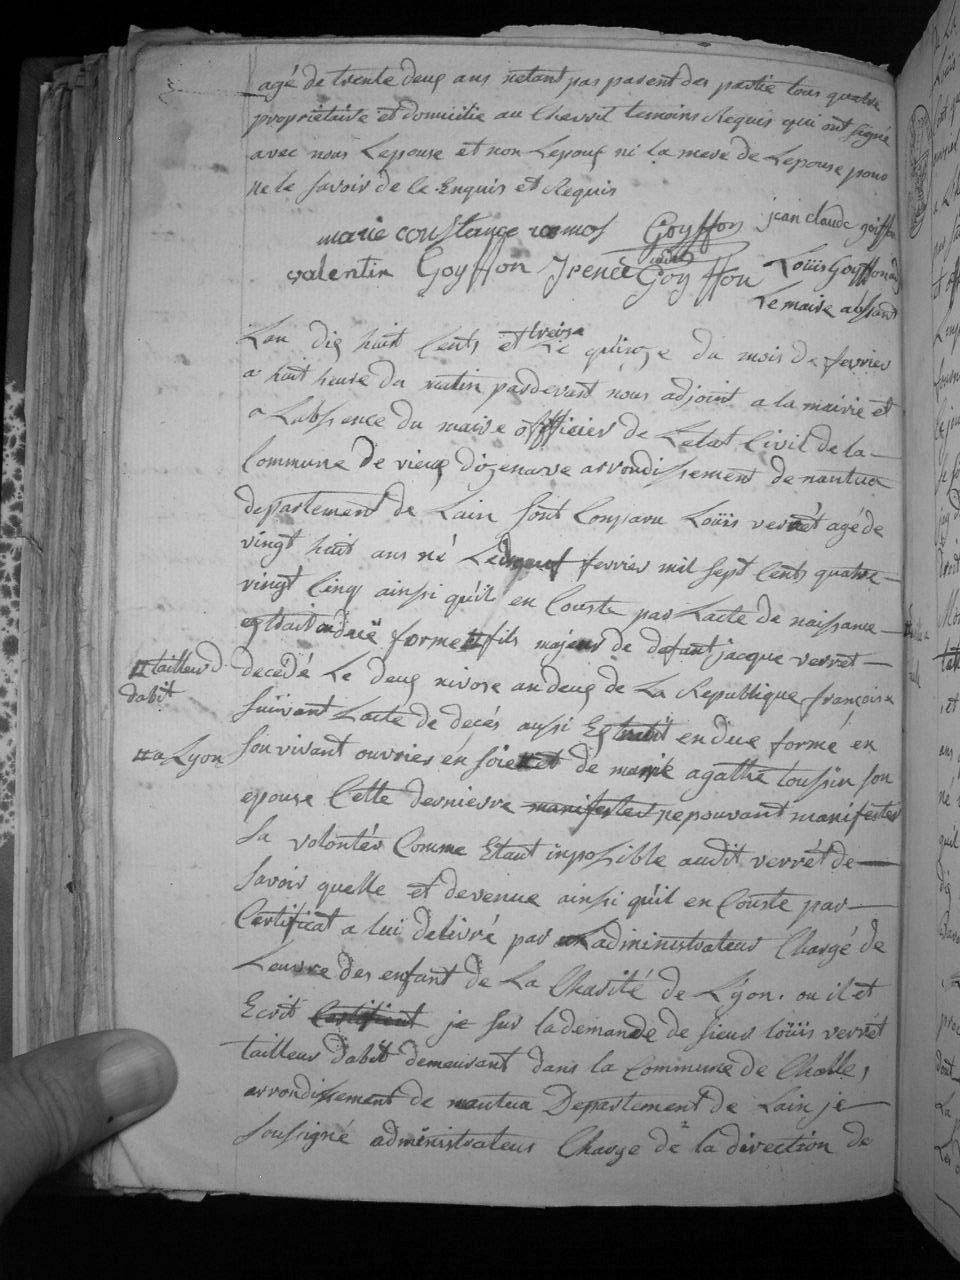 agé de trente deux ans netant pas parent des partie tous quatre
propriétaire et domicilie au Chevril temoins Requis qui ont signé
avec nous Lepouse et non Lepoux ni la mere de Lepouse pour
ne le savoir de le Enquis et Requis
marie constance ramos Goyffon jean claude goiffon
valentin Goyffon Irenée Goyffon Loüis Goyffon adj
Le maire absant
Lan dix huit Cents et treize Le quinze du mois de fevrier
a huit heure du matin pardevant nous adjoint a la mairie et
a Labsence du maire officier de Letat Civil de la
Commune de vieux dizenave arrondissement de nantua
departement de Lain sont Comparu Loüis verrèt agé de
vingt huit ans né Le fevrier mil sept Cents quatre
vingt Cinq ainsi quil en Conste par Lacte de naissance
extrait en due forme # fils majeur de defant jacque verret
# tailleur d
dabit
decedé Le deux nivose an deux de La Republique françoise
suivant Lacte de decés aussi Extrait en due formé en
# a Lyon
son vivant ouvrier en soie # et de marie agathe toussin son
epouse Cette derniere manifester ne pouvant manifester
sa volontér Comme Etant inpossible audit verrèt de
savoir quelle et devenue ainsi quil en Conste par
Certificat a lui delivré par Ladministrateur Chargé de
Leuvre des enfant de La Charité de Lyon. ou il et
Ecrit Certificat je sur la demande de sieur loüis verrèt
tailleur dabit demeurant dans la Commune de Challes
arrondissement de nantua Departement de Lain je
soussigné administrateur Charge de la direction de